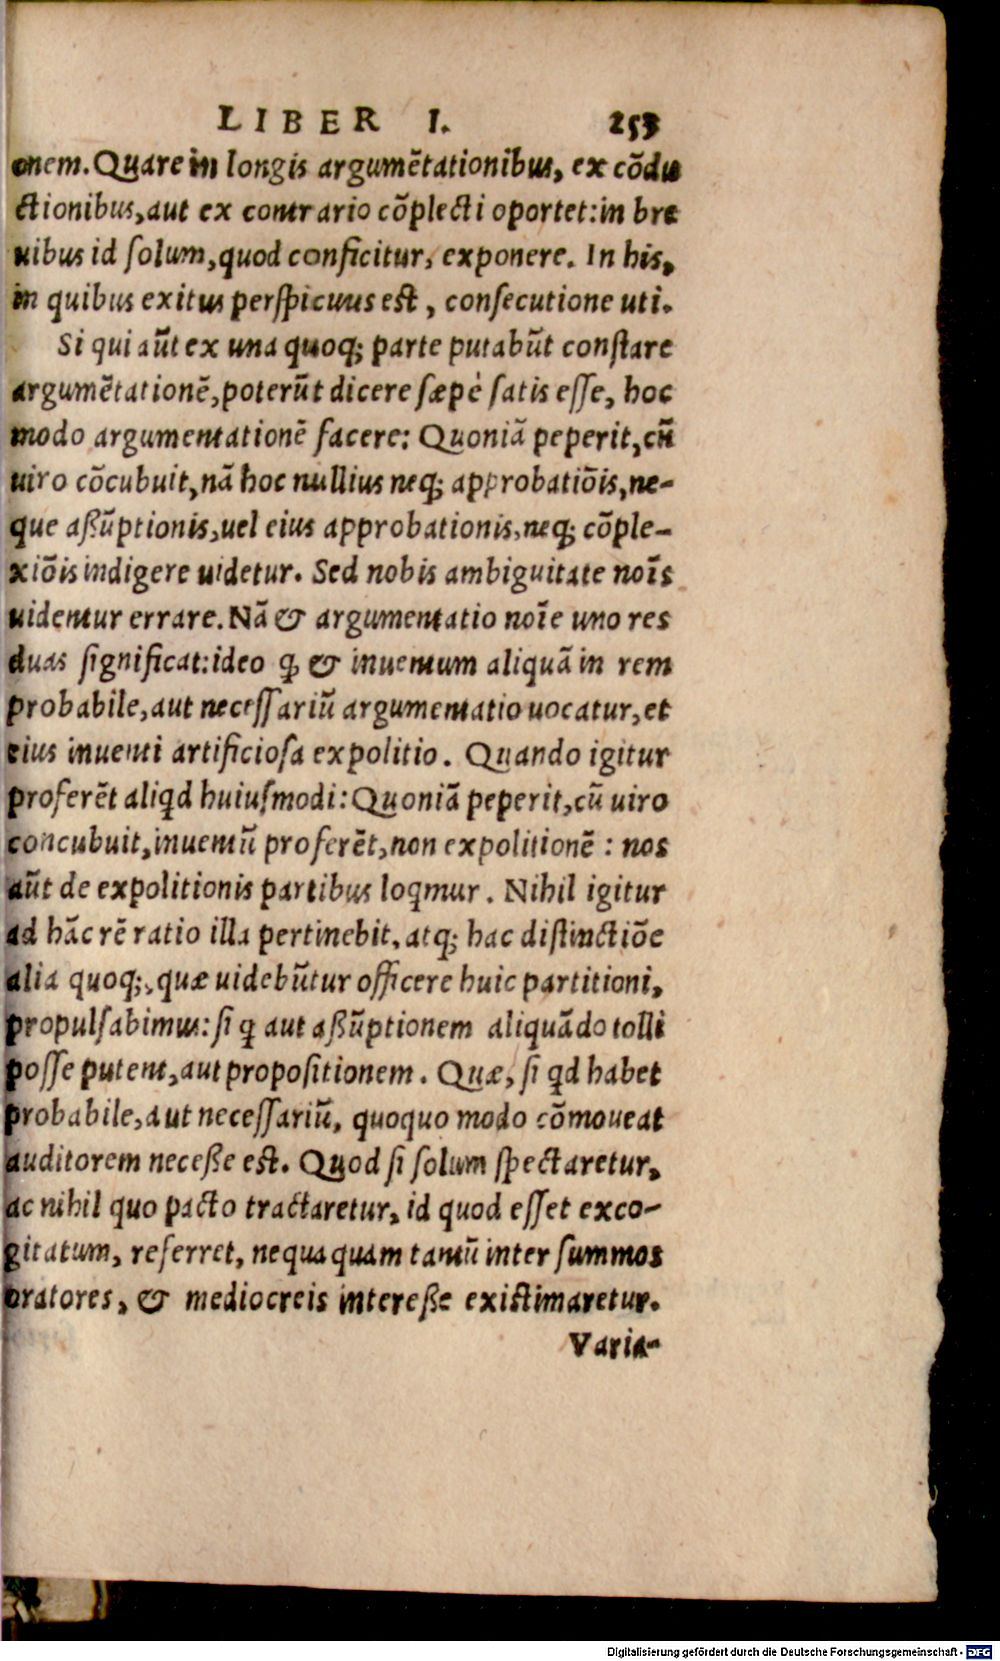 LIBER I. 253
onem. Quare in longis argumētationibus, ex cōdu
ctionibus, aut ex contrario cōplecti oportet: in bre
uibus id solum, quod conficitur, exponere. In his,
in quibus exitus perspicuus est, consecutione uti.
Si qui aūt ex una quoq; parte putabūt constare
argumētationē, poterūt dicere sæpè satis esse, hoc
modo argumentationē facere: Quoniā peperit, cū
uiro cōcubuit, nā hoc nullius neq; approbatiōis, ne-
que aßūptionis, uel eius approbationis, neq; cōple-
xiōis indigere uidetur. Sed nobis ambiguitate noīs
uidentur errare. Nā & argumentatio noīe uno res
duas significat: ideo ꝙ & inuentum aliquā in rem
probabile, aut necessariū argumentatio uocatur, et
eius inuenti artificiosa expolitio. Quando igitur
proferēt aliꝗd huiusmodi: Quoniā peperit, cū uiro
concubuit, inuentū proferēt, non expolitionē: nos
aūt de expolitionis partibus loꝗmur. Nihil igitur
ad hāc rē ratio illa pertinebit, atq; hac distinctiōe
alia quoq;, quæ uidebūtur officere huic partitioni,
propulsabimus: si ꝗ aut aßūptionem aliquādo tolli
posse putent, aut propositionem. Quæ, si ꝗd habet
probabile, aut necessariū, quoquo modo cōmoueat
auditorem neceße est. Quod si solum spectaretur,
ac nihil quo pacto tractaretur, id quod esset exco-
gitatum, referret, nequaquam tantū inter summos
oratores, & mediocreis intereße existimaretur.
Varia-
Digitalisierung gefördert durch die Deutsche Forschungsgemeinschaft - DFG